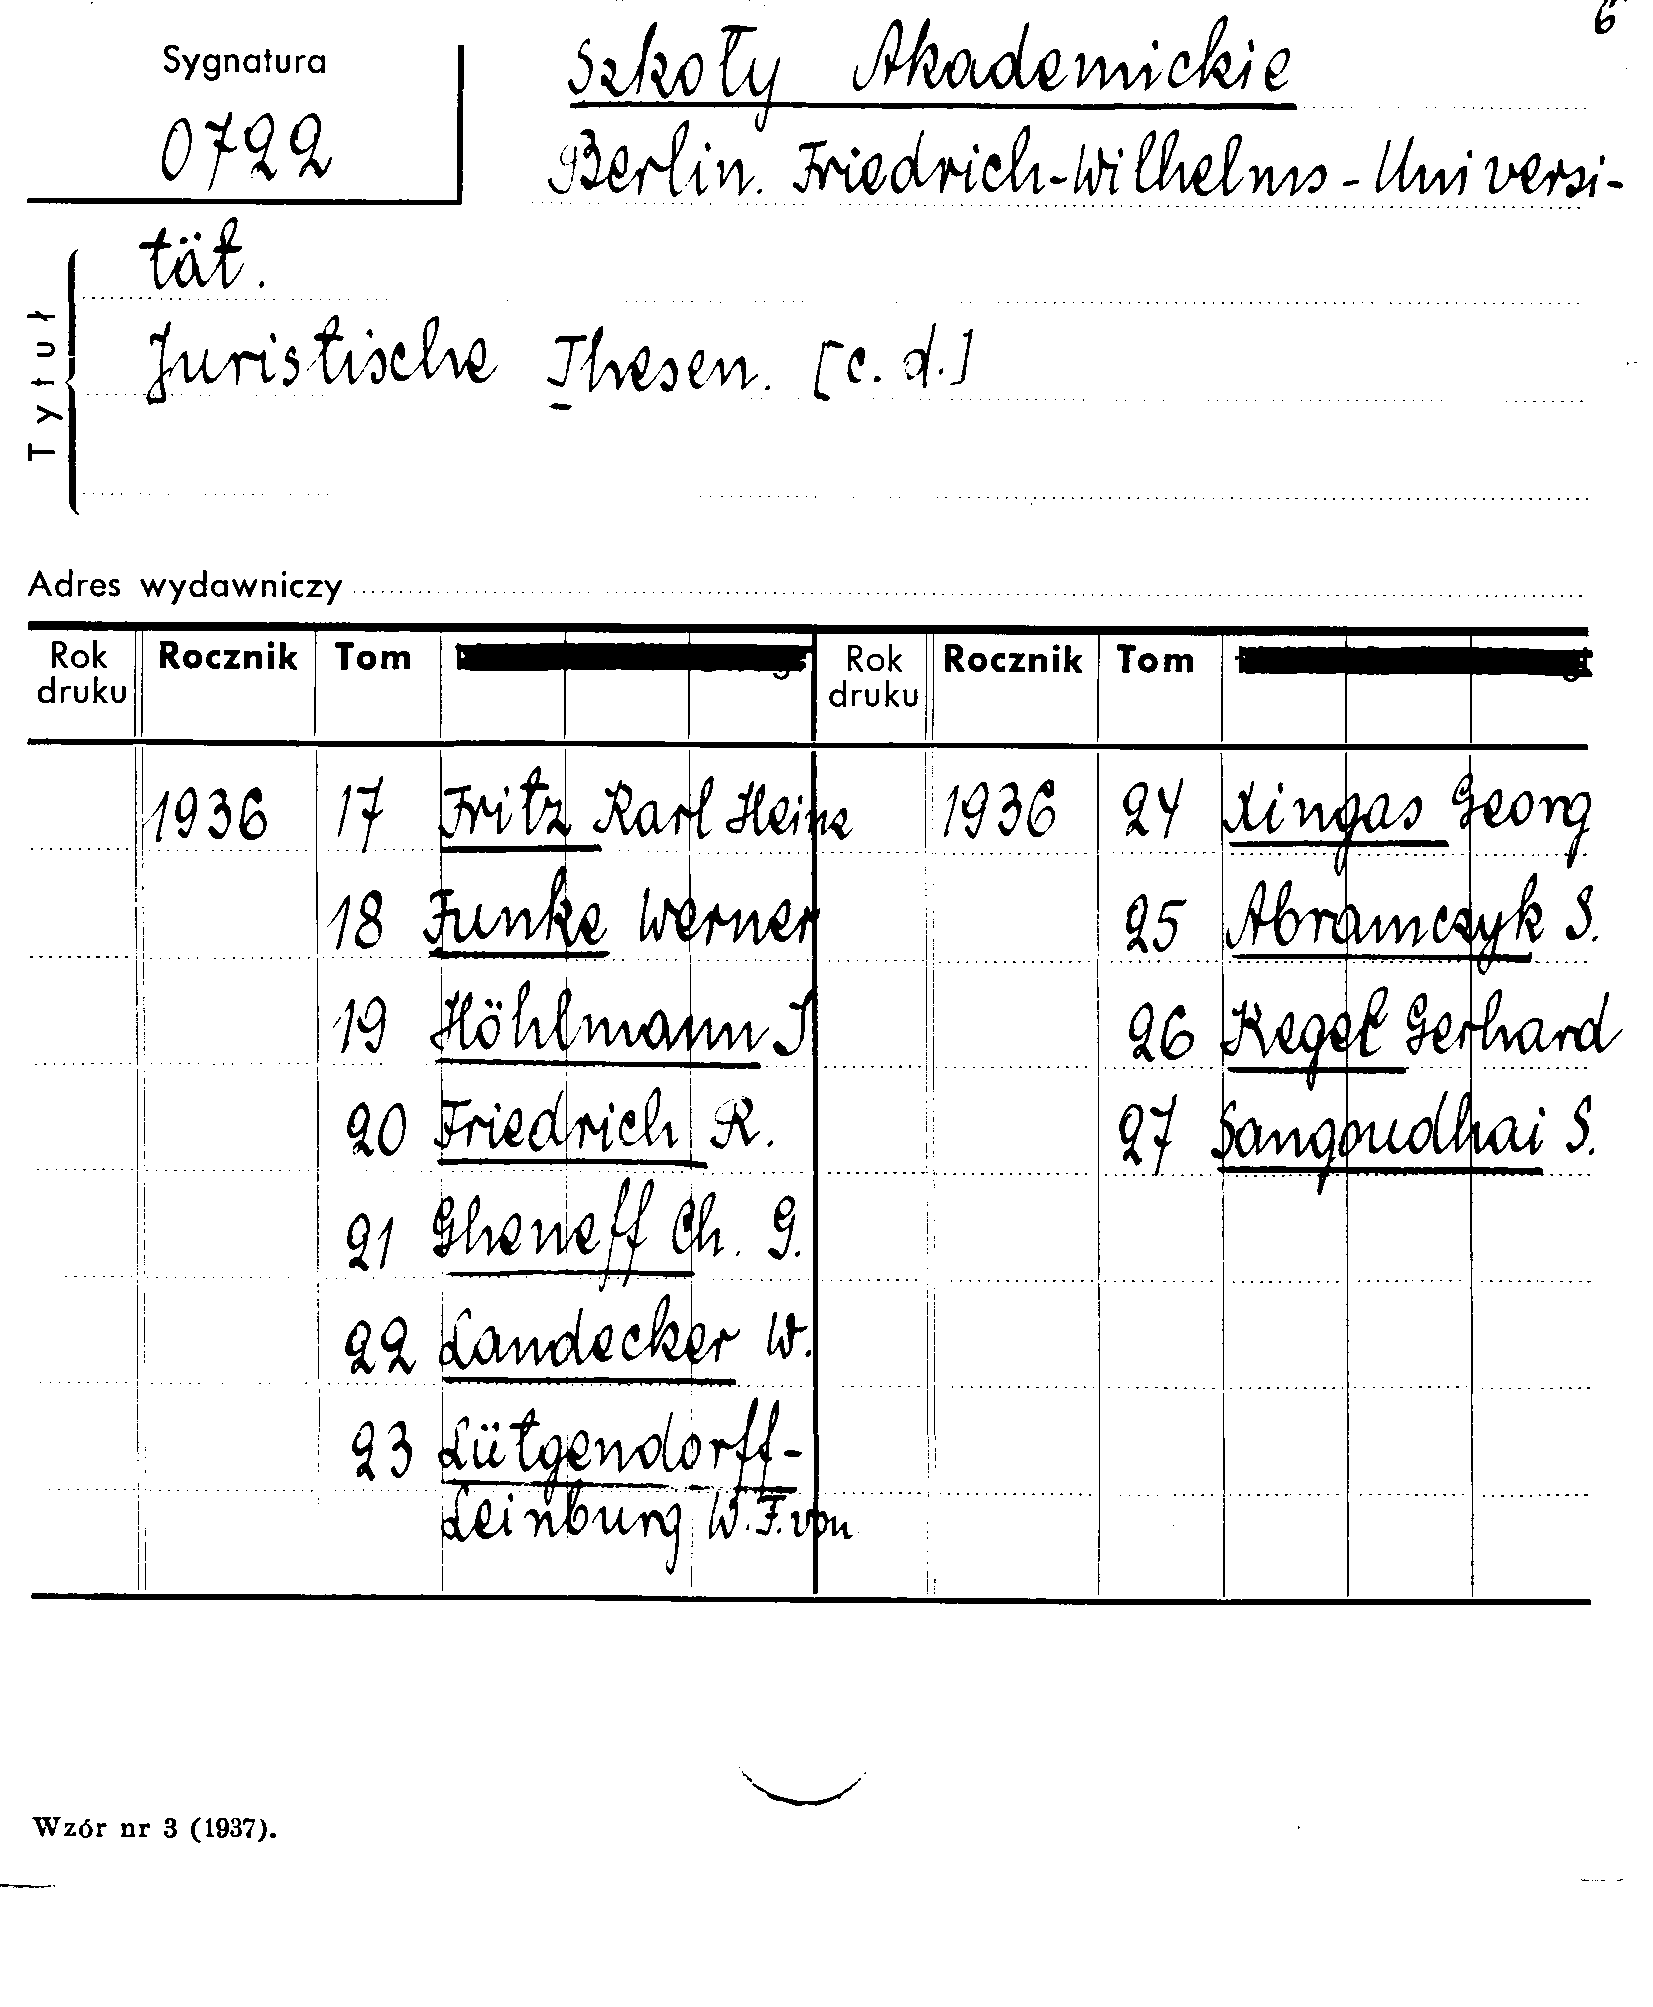 6
Sygnatura
0722
Szkoły Akademickie
Berlin. Friedrich-Wilhelms-Universi-
tät.
Juristische Thesen. [c. d.]
Tytuł
Adres wydawniczy
Rok druku Rocznik Tom Rok druku Rocznik Tom
1936 17 Fritz Karl Heinz 1936 24 Xingas Georg
18 Funke Werner 25 Abramczyk S.
19 Höhlmann J. 26 Kegel Gerhard
20 Friedrich R. 27 Sangoudhai S.
21 Gheneff Ch. G.
22 Landecker W.
23 Lütgendorff-
Leinburg W. F. von
Wzór nr 3 (1937).